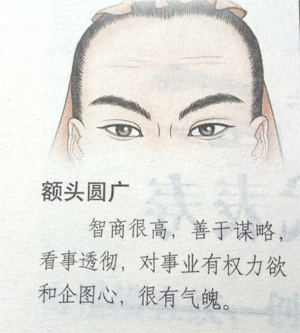 额头圆广
智商很高，善于谋略，
看事透彻，对事业有权力欲
和企图心，很有气魄。